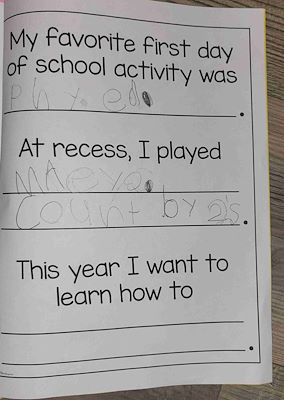 My favorite first day
of school activity was
Phy. ed.
.
At recess, I played
Count by 2's
.
This year I want to
learn how to
.